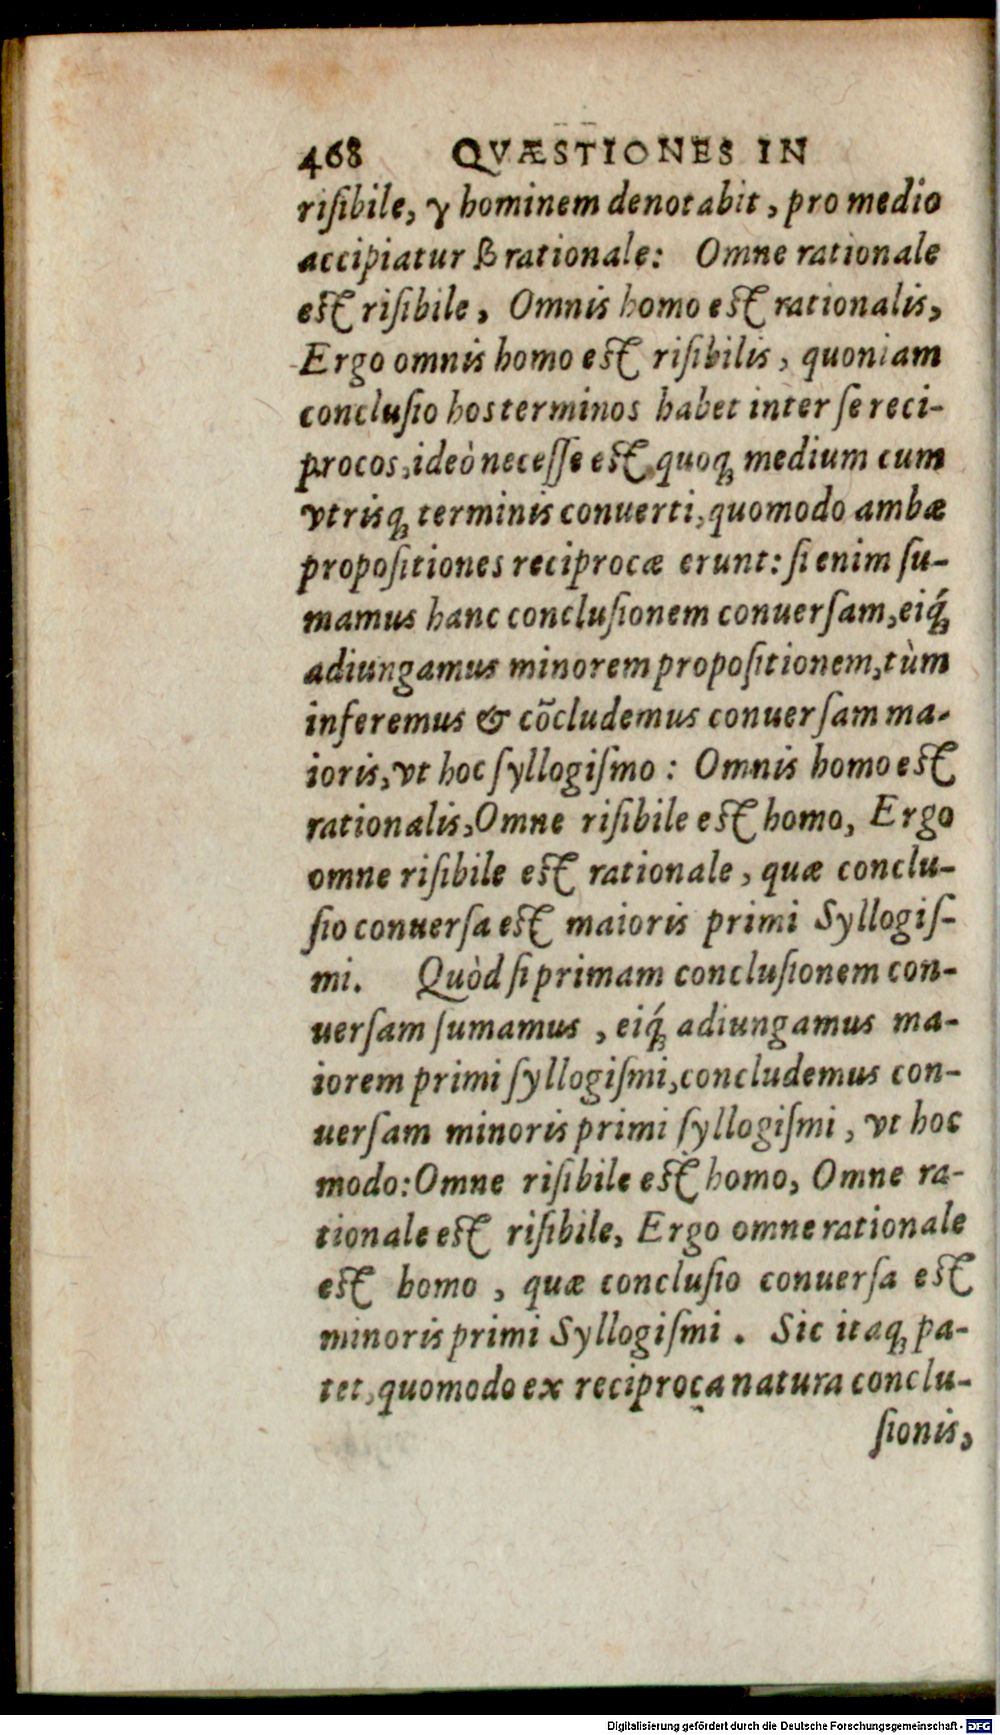 468 QVÆSTIONES IN
riſibile, γ hominem denotabit, pro medio
accipiatur β rationale: Omne rationale
eſt riſibile, Omnis homo eſt rationalis,
Ergo omnis homo eſt riſibilis, quoniam
concluſio hos terminos habet inter ſe reci-
procos, ideò neceſſe eſt quoq́; medium cum
vtrisq́; terminis conuerti, quomodo ambæ
propoſitiones reciprocæ erunt: ſi enim ſu-
mamus hanc concluſionem conuerſam, eiq́;
adiungamus minorem propoſitionem, tùm
inferemus & cõcludemus conuerſam ma-
ioris, vt hoc ſyllogiſmo: Omnis homo eſt
rationalis, Omne riſibile eſt homo, Ergo
omne riſibile eſt rationale, quæ conclu-
ſio conuerſa eſt maioris primi Syllogiſ-
mi. Quòd ſi primam concluſionem con-
uerſam ſumamus, eiq́; adiungamus ma-
iorem primi ſyllogiſmi, concludemus con-
uerſam minoris primi ſyllogiſmi, vt hoc
modo: Omne riſibile eſt homo, Omne ra-
tionale eſt riſibile, Ergo omne rationale
eſt homo, quæ concluſio conuerſa eſt
minoris primi Syllogiſmi. Sic itaq; pa-
tet, quomodo ex reciproca natura conclu-
ſionis,
Digitalisierung gefördert durch die Deutsche Forschungsgemeinschaft - DFG